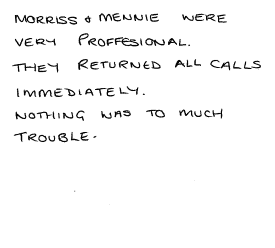 MORRISS & MENNIE WERE
VERY PROFFESIONAL.
THEY RETURNED ALL CALLS
IMMEDIATELY.
NOTHING WAS TO MUCH
TROUBLE.